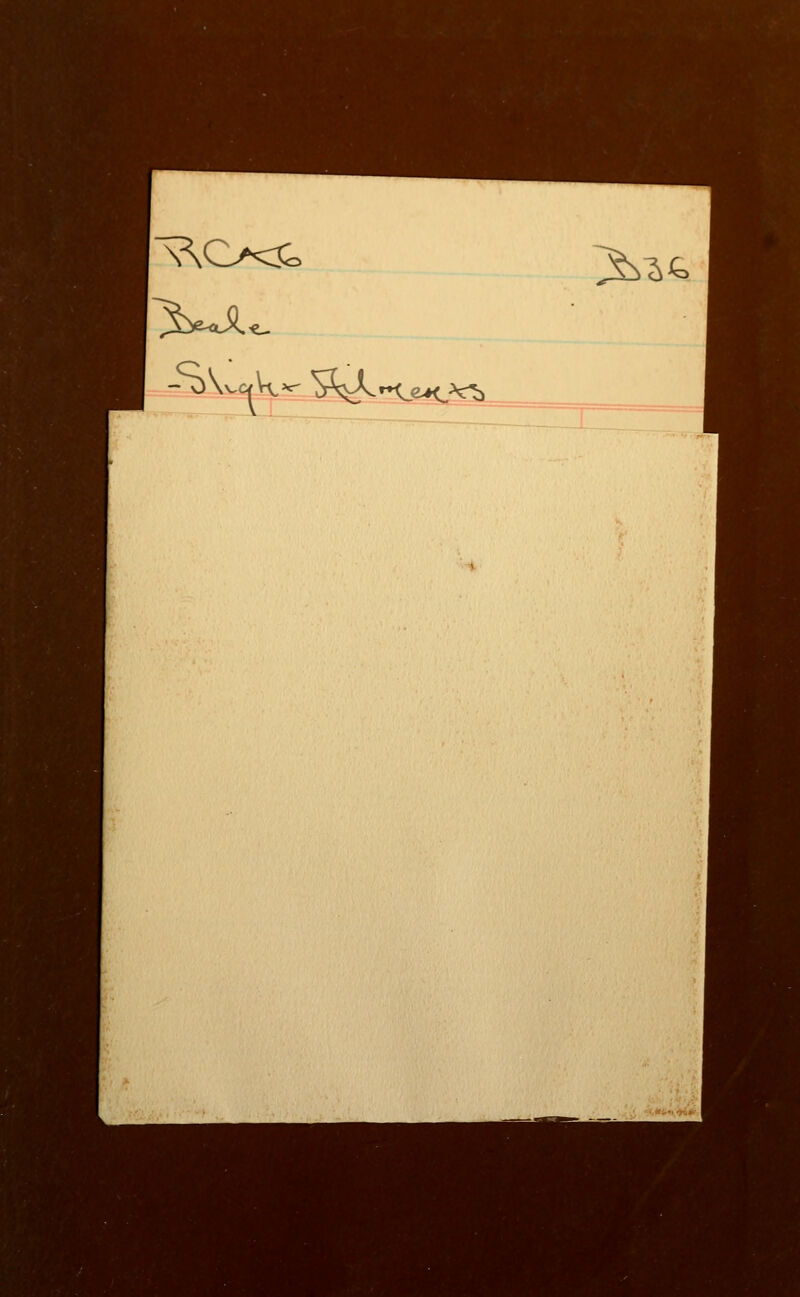 RC46 B36
Beale
-Slight Ailments